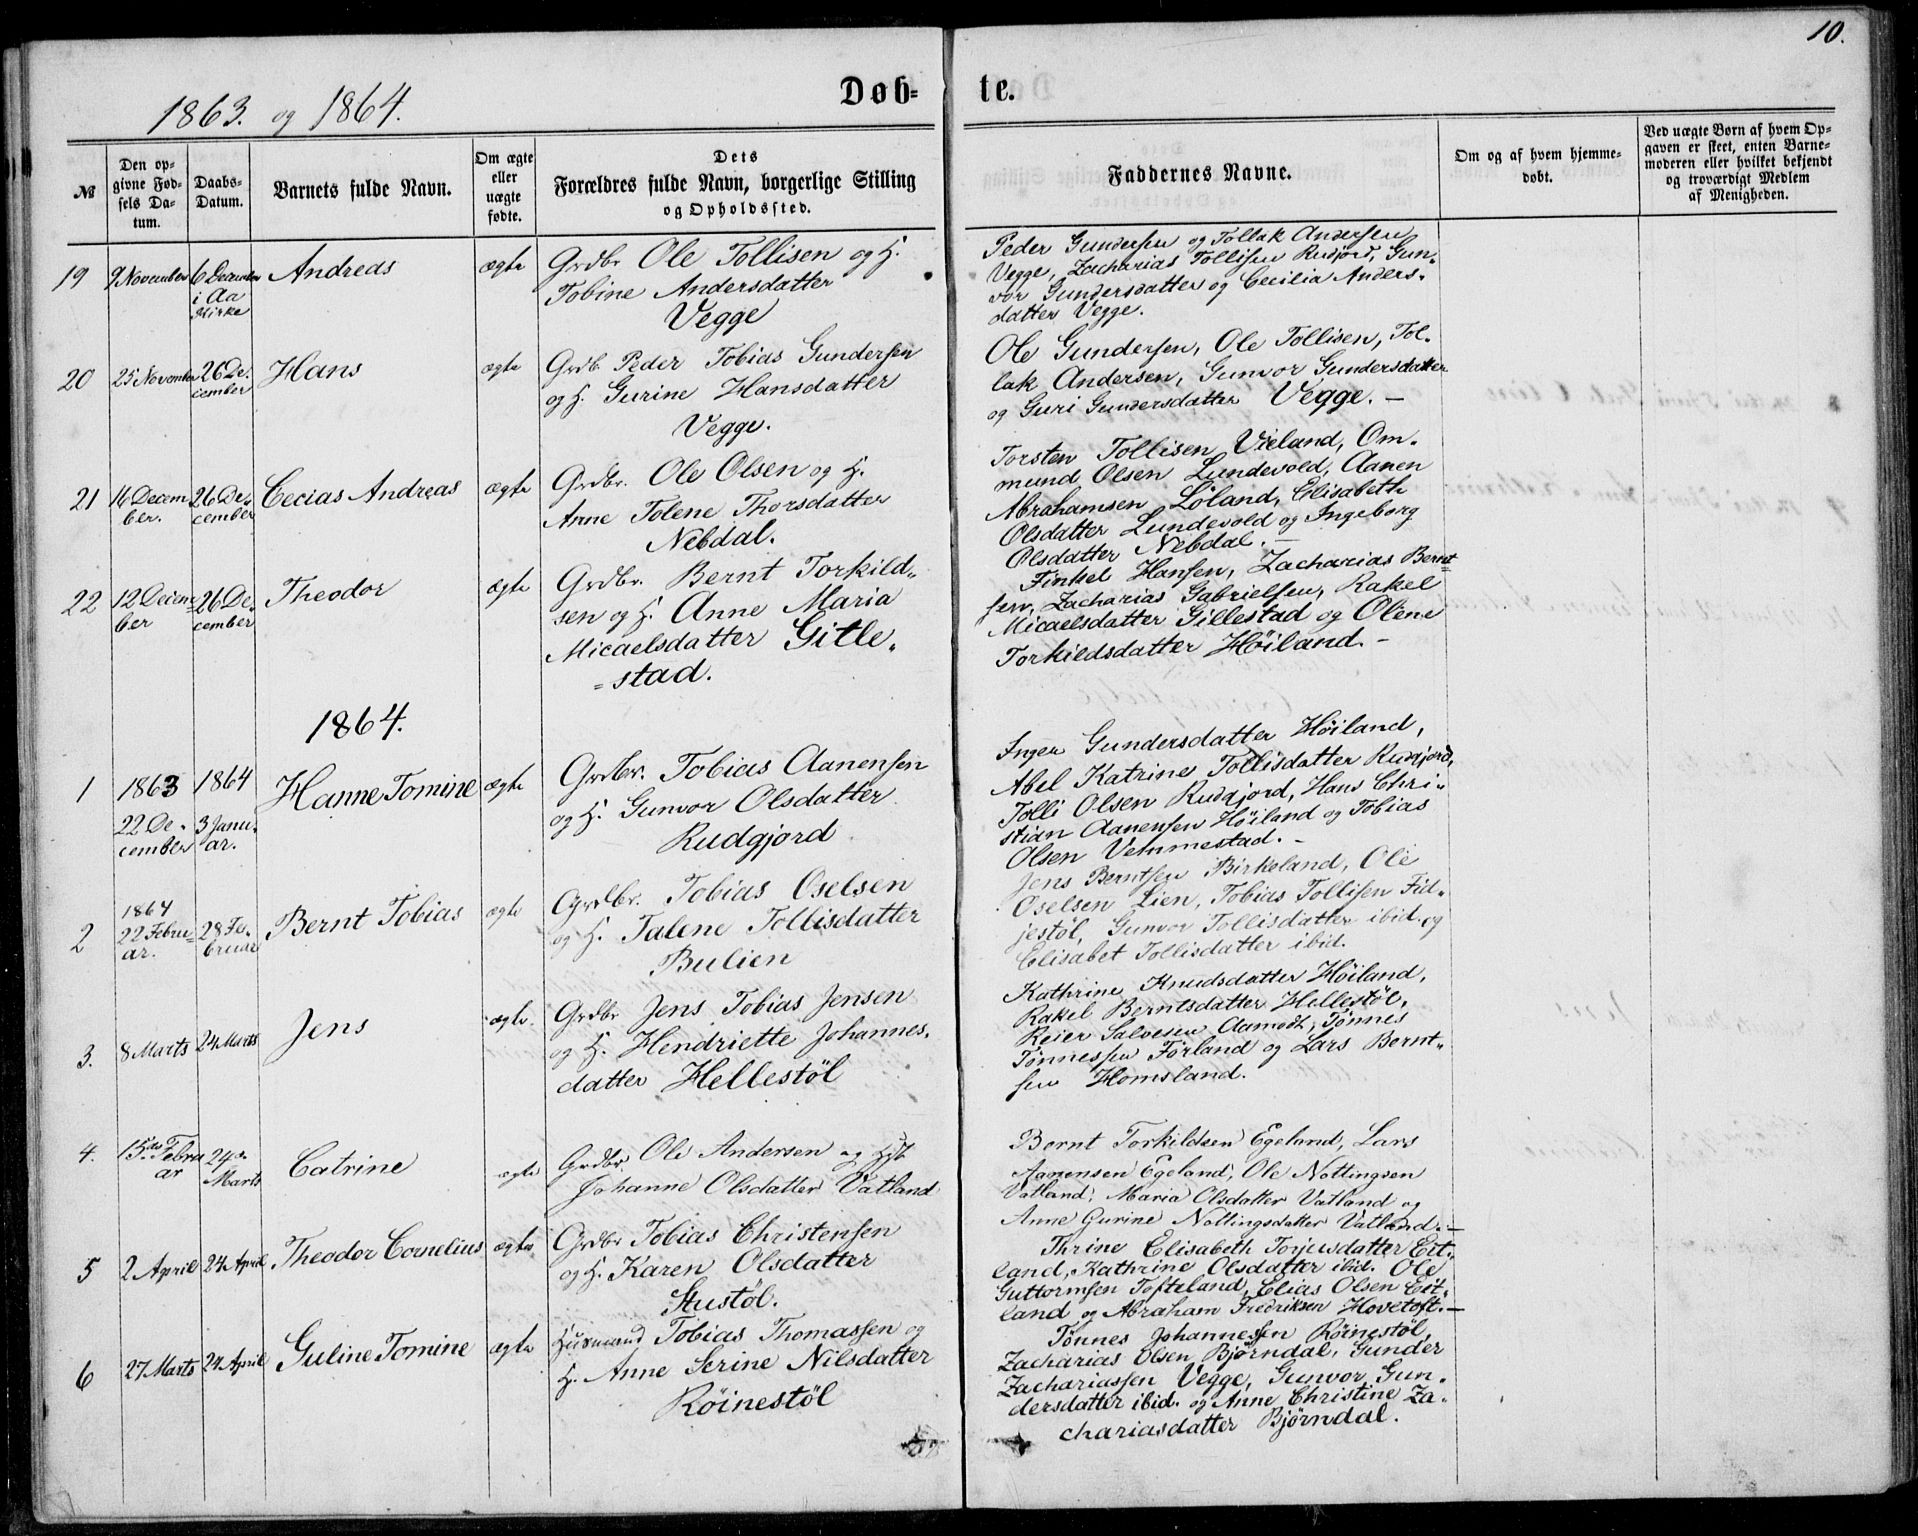 10.
Døb-
te.
1863. og 1864.
№
Den op-
givne Fød-
sels Da-
tum.
Daabs-
Datum.
Barnets fulde Navn.
Om ægte
eller
uægte
fødte.
Dets
Forældres fulde Navn, borgerlige Stilling
og Opholdssted.
Faddernes Navne.
Om og af hvem hjemme-
døbt.
Ved uægte Børn af hvem Op-
gaven er skeet, enten Barne-
moderen eller hvilket bekjendt
og troværdigt Medlem
af Menigheden.
19
9 November
6 December
i Aa
Kirke
Andreas
ægte
Grdbr Ole Tollisen og H.
Tobine Andersdatter
Vegge
Peder Gundersen og Tollak Andersen
Vegge, Zacharias Tollisen Rudjord, Gun-
vor Gundersdatter og Cecilia Anders-
datter Vegge.
20
25 November
26 De-
cember
Hans
ægte
Grdb. Peder Tobias Gundersen
og H. Gurine Hansdatter
Vegge.
Ole Gundersen, Ole Tollisen, Tol-
lak Andersen, Gunvor Gundersdatter
og Guri Gundersdatter Vegge. -
21
16 Decem
ber.
26 De-
cember
Cecias Andreas
ægte
Grdbr. Ole Olsen og H.
Anne Tolene Thorsdatter
Nebdal.
Torsten Tollisen Vieland, Om-
mund Olsen Lundevold, Aanen
Abrahamsen Löland, Elisabeth
Olsdatter Lundevold og Ingeborg
Olsdatter Nebdal. -
22
12 Decem-
ber
26 De-
cember
Theodor
ægte
Grdbr. Bernt Torkild-
sen og H. Anne Maria
Micaelsdatter Gitle-
=stad.
Finkel Hansen, Zacharias Bernt=
sen, Zacharias Gabrielsen, Rakel
Micaelsdatter Gillestad og Olene
Torkildsdatter Höiland. -
1864.
1
1863
22 De-
cember
1864
3 Janu-
ar.
Hanne Tomine
ægte
Grdbr. Tobias Aanensen
og H. Gunvor Olsdatter
Rudgjord
Inger Gundersdatter Höiland,
Abel Katrine Tollisdatter Rudgjord,
Tolli Olsen Rudgjord, Hans Chri-
stian Aanensen Höiland og Tobias
Olsen Vemmestad. -
2
1864
22 Febru-
ar.
28 Fe-
bruar
Bernt Tobias
ægte
Grdbr. Tobias Oselsen
og H. Talene Tollisdatter
Bulien
Jens Berntsen Birkeland, Ole
Oselsen Lien, Tobias Tollisen Fid-
jestöl, Gunvor Tollisdatter ibid. og
Elisabet Tollisdatter ibid.
3.
8 Marts
24 Marts
Jens
ægte.
Grdbr Jens Tobias Jensen
og H. Hendriette Johannes-
datter Hellestöl
Kathrine Knudsdatter Höiland,
Rakel Berntsdatter Hellestöl,
Reier Salvesen Aamodt, Tönnes
Tönnessen Förland og Lars Bernt-
sen Homsland.
4.
15de Febru
ar
24de
Marts
Catrine
ægte
Grdbr. Ole Andersen og Hst
Johanne Olsdatter Vatland
Bernt Torkildsen Egeland, Lars
Aanensen Egeland, Ole Nottingsen
Vatland, Maria Olsdatter Vatland og
Anne Gurine Nottingsdatter Vatland. -
5
2 April
24 April
Theodor Cornelius
ægte
Grdbr Tobias Christensen
og H. Karen Olsdatter
Stustöl.
Thrine Elisabeth Torjusdatter Eit-
land, Kathrine Olsdatter ibid. Ole
Guttormsen Tofteland, Elias Olsen Eit-
land og Abraham Fredriksen Hovetoft. -
6
27 Marts
24 April
Guline Tomine
ægte
Husmand Tobias Thomassen og
H. Anne Serine Nilsdatter
Röinestöl
Tönnes Johannessen Röinestöl,
Zacharias Olsen Björndal, Gunder
Zachariassen Vegge, Gunvor Gun-
dersdatter ibid. og Anne Christine Za-
chariasdatter Björndal.